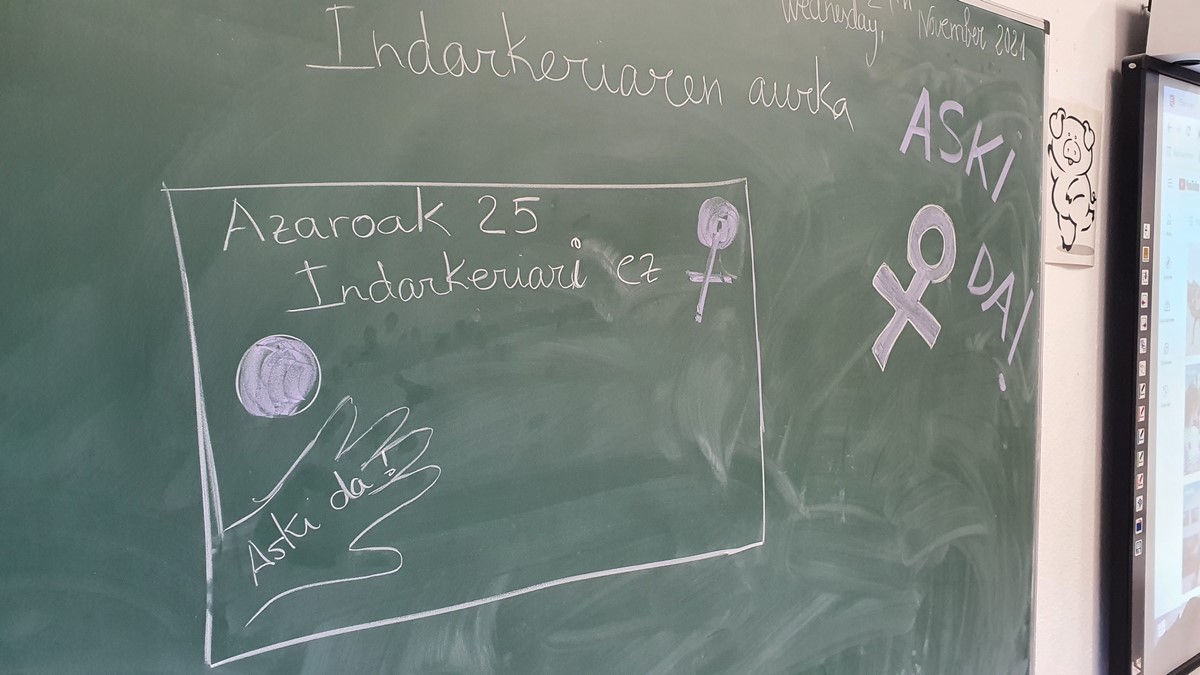 Wednesday, November 2021
Indarkeriaren aurka
ASKI
DA!
Azaroak 25
Indarkeriari ez
Aski da!